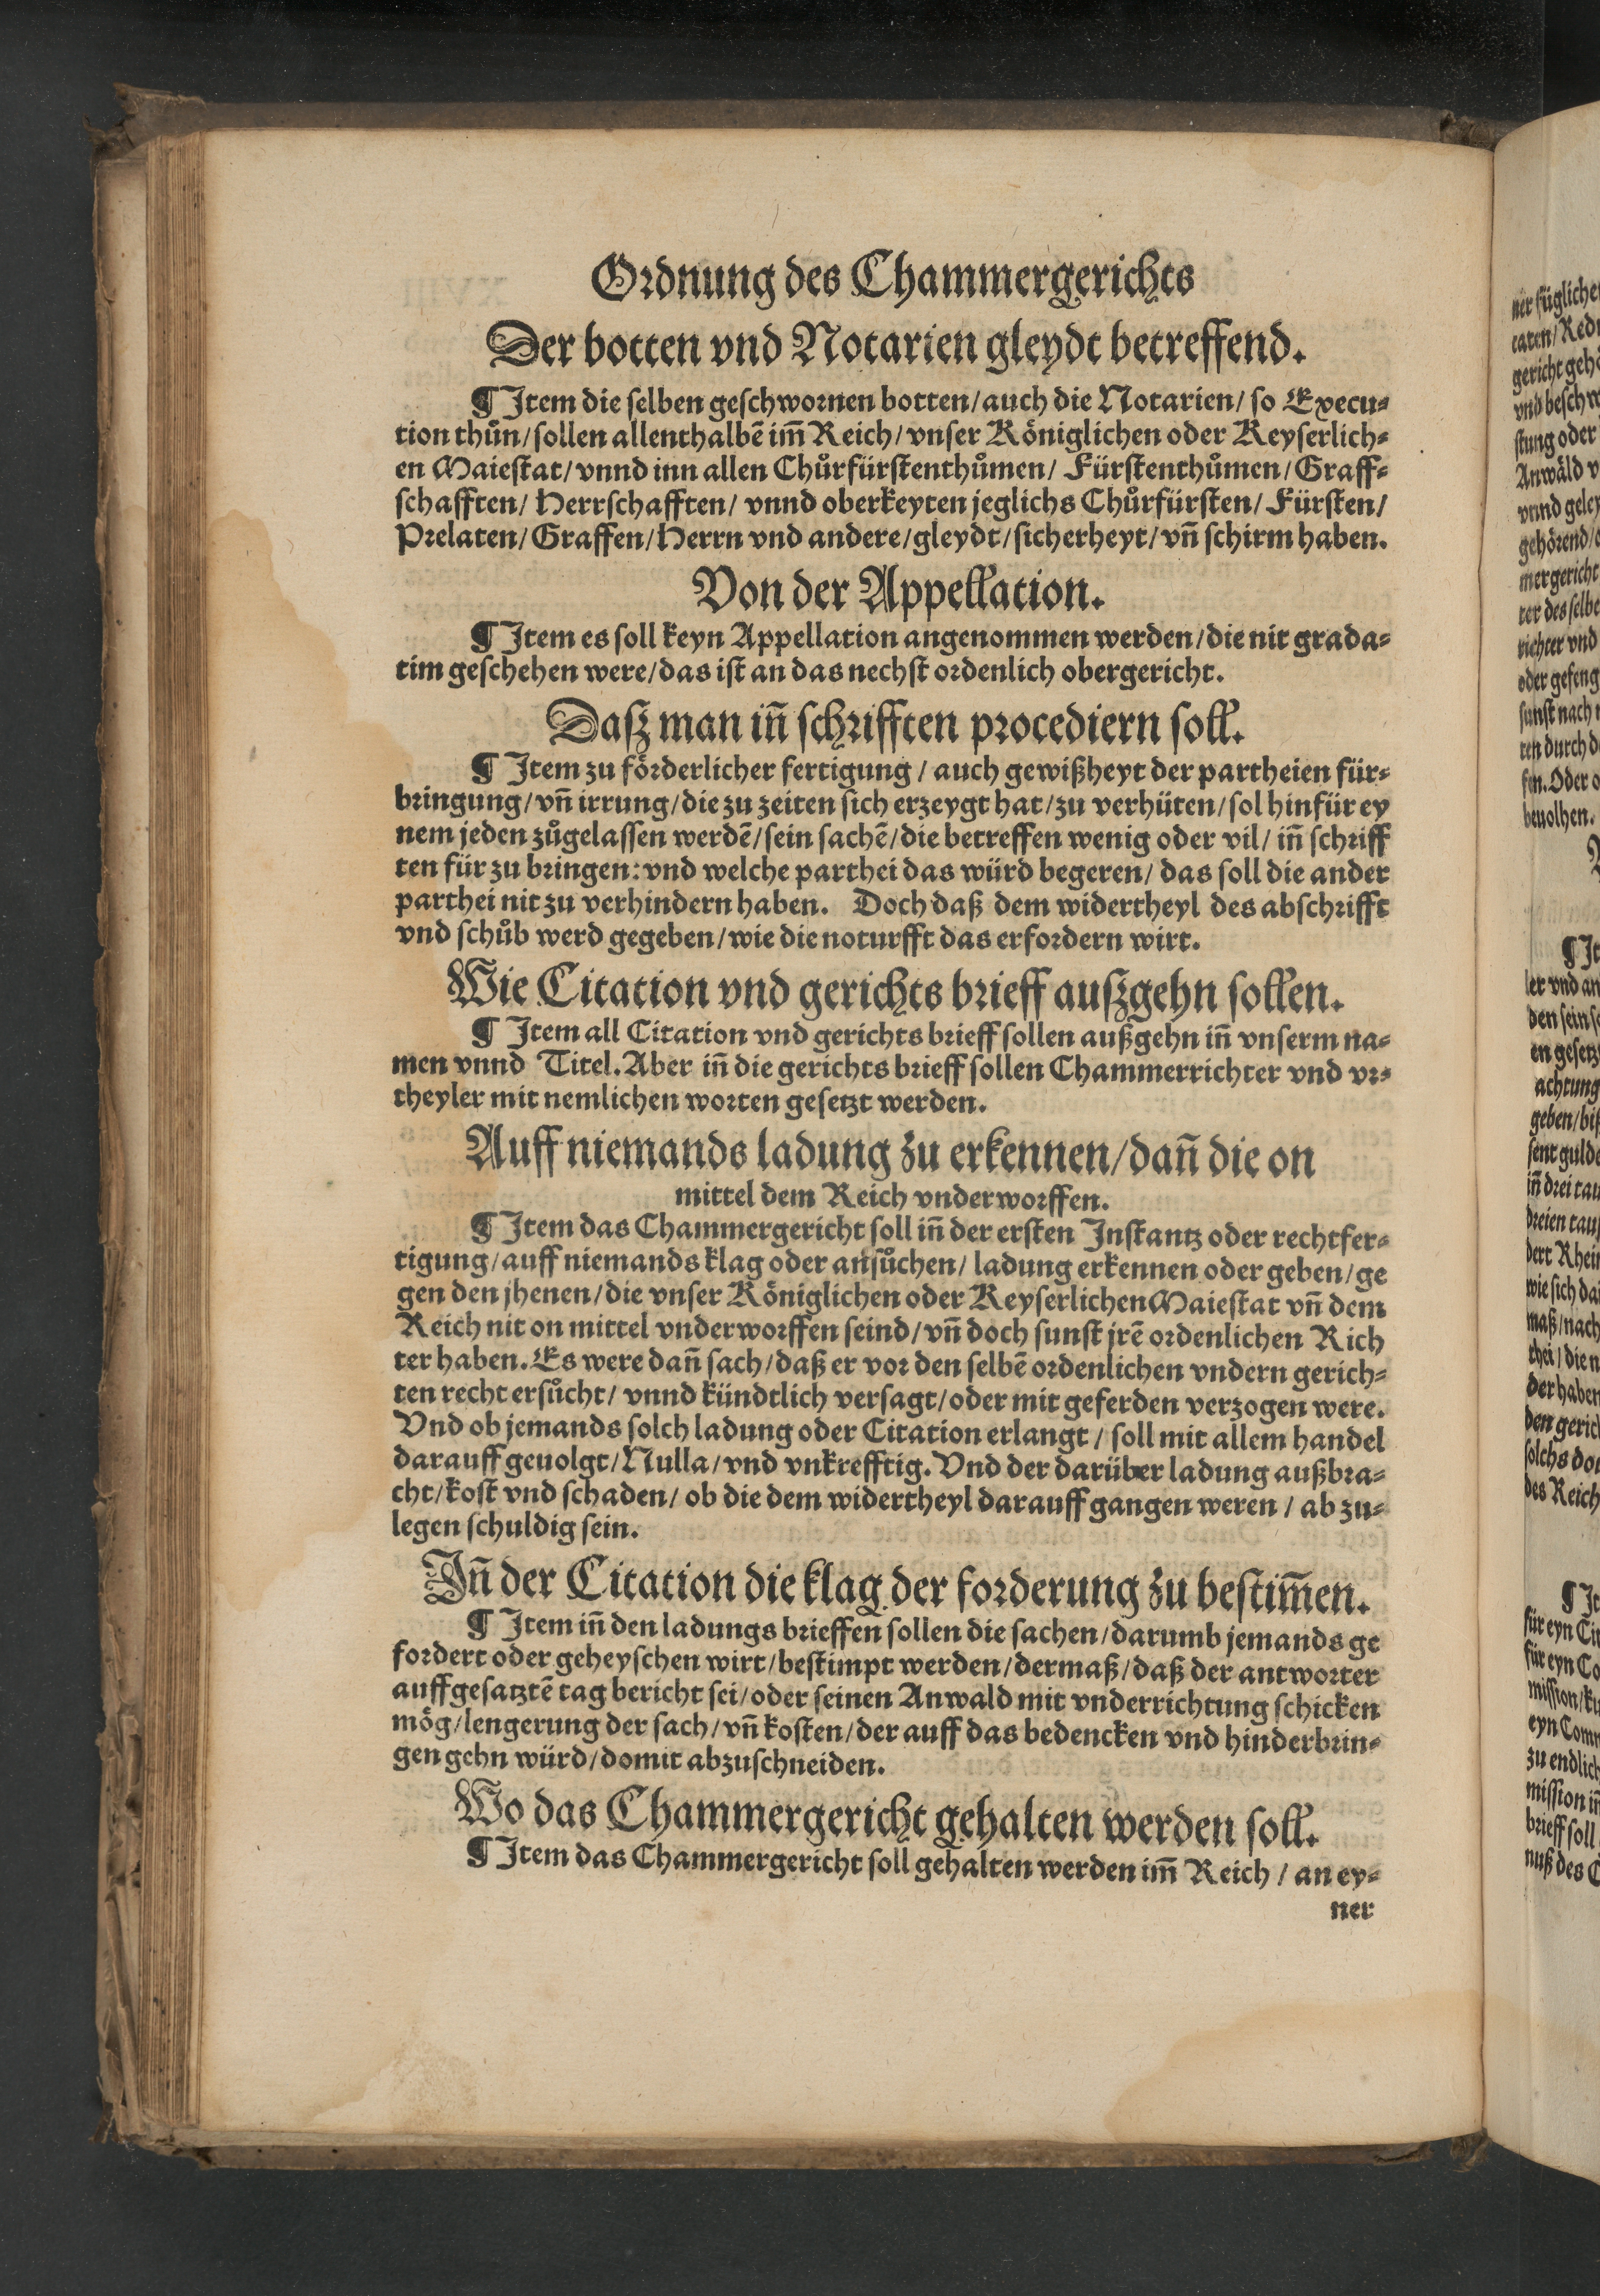 Ordnung des Chammergerichts
Der botten vnd Notarien gleydt betreffend.
¶ Item die ſelben geſchwornen botten/ auch die Notarien/ ſo Execu⸗
tion thůn/ ſollen allenthalbē im̄ Reich/ vnſer Königlichen oder Keyſerlich⸗
en Maieſtat/ vnnd inn allen Chůrfürſtenthůmen/ Fürſtenthůmen/ Graff⸗
ſchafften/ Herrſchafften/ vnnd oberkeyten jeglichs Chůrfürſten/ Fürſten/
Prelaten/ Graffen/ Herrn vnd andere/ gleydt/ ſicherheyt/ vn̄ ſchirm haben.
Von der Appellation.
¶ Item es ſoll keyn Appellation angenommen werden/ die nit grada⸗
tim geſchehen were/ das iſt an das nechſt ordenlich obergericht.
Daſz man in̄ ſchrifften procediern ſoll.
¶ Item zu förderlicher fertigung / auch gewißheyt der partheien für⸗
bringung/ vn̄ irrung/ die zu zeiten ſich erzeygt hat/ zu verhüten/ ſol hinfür ey
nem jeden zůgelaſſen werdē/ ſein ſachē/ die betreffen wenig oder vil/ in̄ ſchriff
ten für zu bringen: vnd welche parthei das würd begeren/ das ſoll die ander
parthei nit zu verhindern haben. Doch daß dem widertheyl des abſchrifft
vnd ſchůb werd gegeben/ wie die noturfft das erfordern wirt.
Wie Citation vnd gerichts brieff auſzgehn ſollen.
¶ Item all Citation vnd gerichts brieff ſollen außgehn in̄ vnſerm na⸗
men vnnd Titel. Aber in̄ die gerichts brieff ſollen Chammerrichter vnd vr⸗
theyler mit nemlichen worten geſetzt werden.
Auff niemands ladung zu erkennen/ dan̄ die on
mittel dem Reich vnderworffen.
¶ Item das Chammergericht ſoll in̄ der erſten Inſtantz oder rechtfer⸗
tigung/ auff niemands klag oder anſůchen/ ladung erkennen oder geben/ ge
gen den jhenen/ die vnſer Königlichen oder Keyſerlichen Maieſtat vn̄ dem
Reich nit on mittel vnderworffen ſeind/ vn̄ doch ſunſt jrē ordenlichen Rich
ter haben. Es were dan̄ ſach/ daß er vor den ſelbē ordenlichen vndern gerich⸗
ten recht erſůcht/ vnnd kündtlich verſagt/ oder mit geferden verzogen were.
Vnd ob jemands ſolch ladung oder Citation erlangt / ſoll mit allem handel
darauff geuolgt/ Nulla/ vnd vnkrefftig. Vnd der darüber ladung außbra⸗
cht/ koſt vnd ſchaden/ ob die dem widertheyl darauff gangen weren / ab zu⸗
legen ſchuldig ſein.
In̄ der Citation die klag der forderung zu beſtim̄en.
¶ Item in̄ den ladungs brieffen ſollen die ſachen/ darumb jemands ge
fordert oder geheyſchen wirt/ beſtimpt werden/ dermaß/ daß der antworter
auffgeſatztē tag bericht ſei/ oder ſeinen Anwald mit vnderrichtung ſchicken
mög/ lengerung der ſach/ vn̄ koſten/ der auff das bedencken vnd hinderbrin⸗
gen gehn würd/ domit abzuſchneiden.
Wo das Chammergericht gehalten werden ſoll.
¶ Item das Chammergericht ſoll gehalten werden im̄ Reich / an ey⸗
ner
ner füglichen
gericht
vnd
ſtung oder
Anwäld
vnnd
gehörend/
mergericht
ter des ſelbe
richter vnd
oder gefeng
ſunſt nach
ten durch
Oder
beuolhen.
¶ It
ler vnd an
den ſein
en geſetz
achtung
geben/
ſent
in̄ drei
dreien
dert
wie ſich
maß/ nach
thei/ die
der haben
den gerich
ſolchs
des Reich
¶ It
für eyn
für eyn
miſſion/
eyn
zu endlich
miſſion in̄
brieff ſoll
nuß des